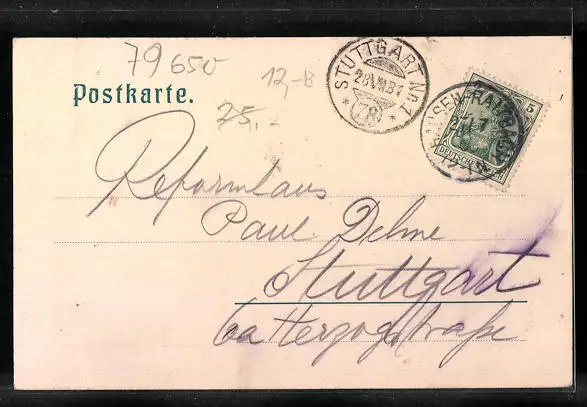 79650
12,-B
Postkarte.
25,-
STUTTGART No. 1
28 VII
5
DEUTSCHES REICH
Reformhaus
Paul Dehne
Stuttgart
6a Herzogstraße